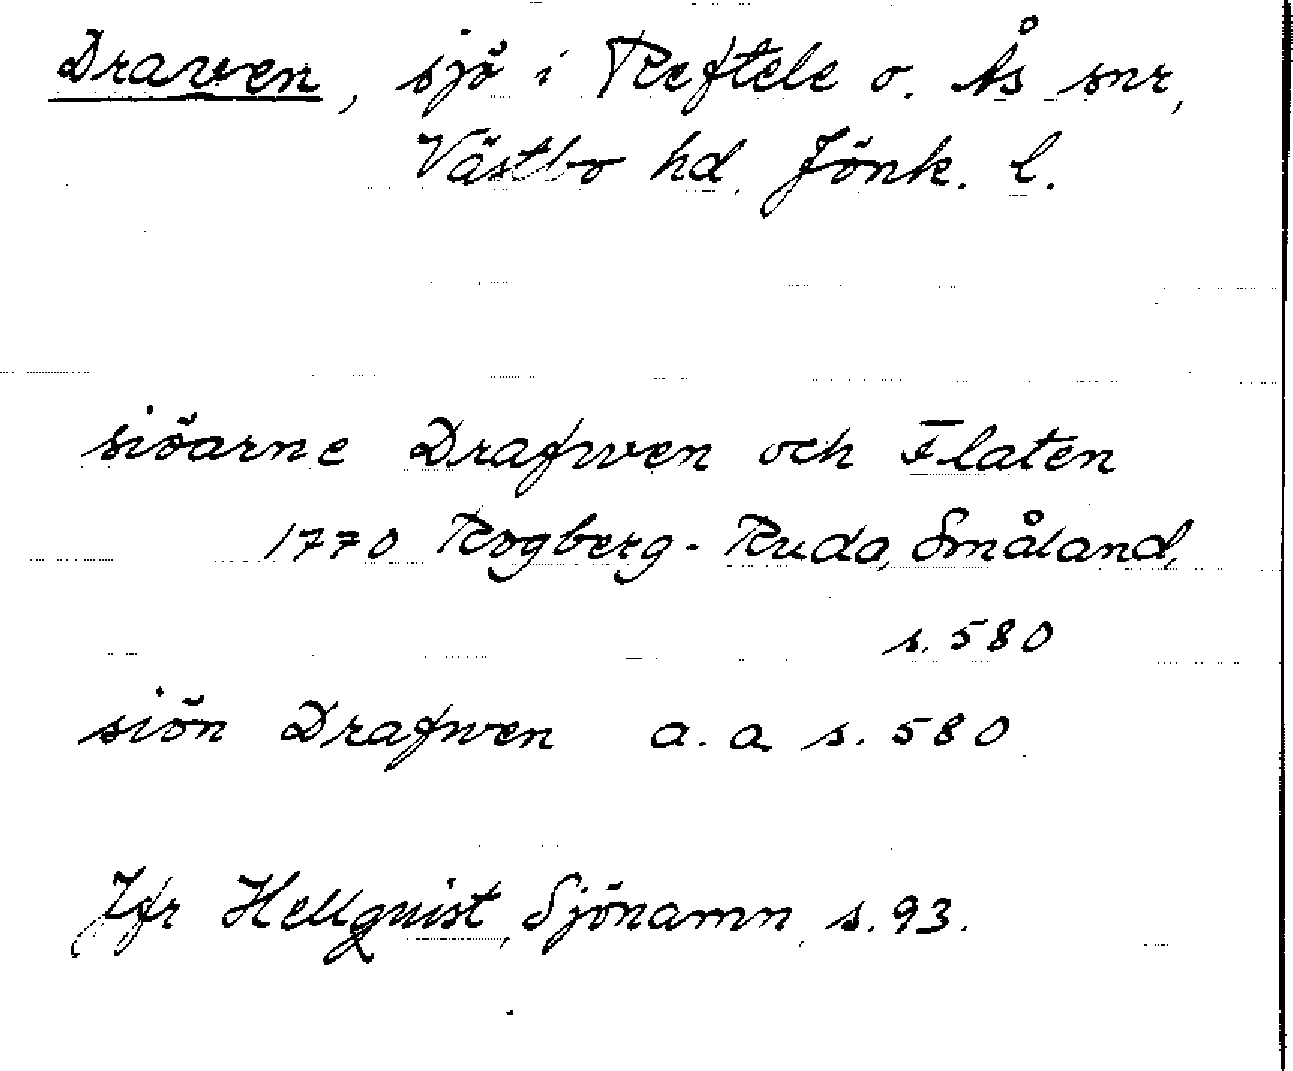 Draven, sjö i Reftele o. Ås snr,
Västbo hd. Jönk. l.
siöarne Drafwen och Flaten
1770 Rogberg-Ruda, Småland,
s. 580
siön Drafwen a. a s. 580
Jfr Hellquist, Sjönamn, s. 93.